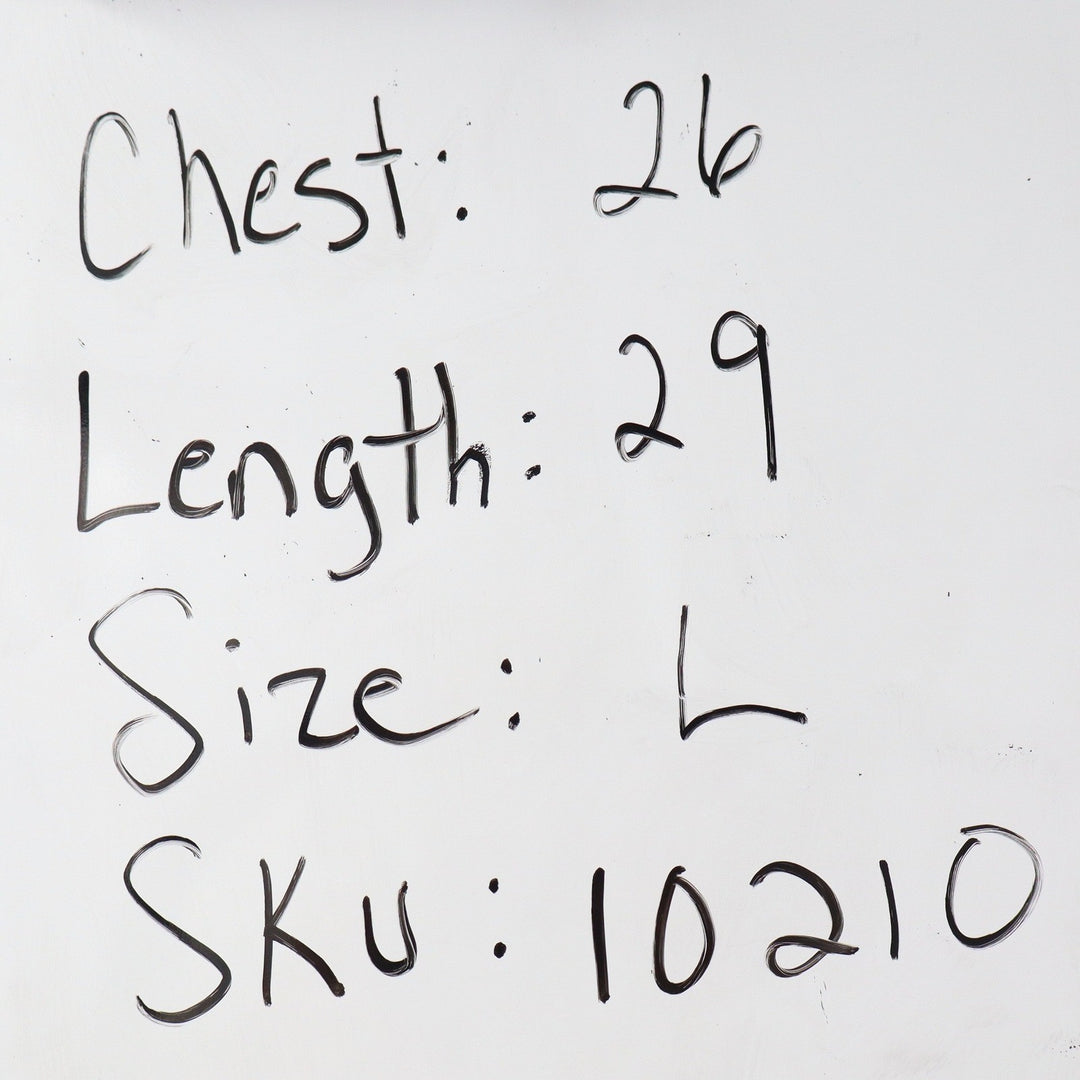 Chest: 26
Length: 29
Size: L
SKU: 10210